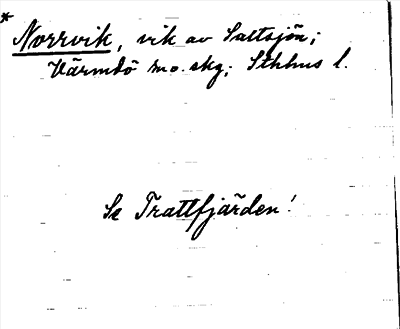 * Norrvik, vik av Saltsjön;
Värmdö m.o. skg; Sthlms l.
Se Trattfjärden!